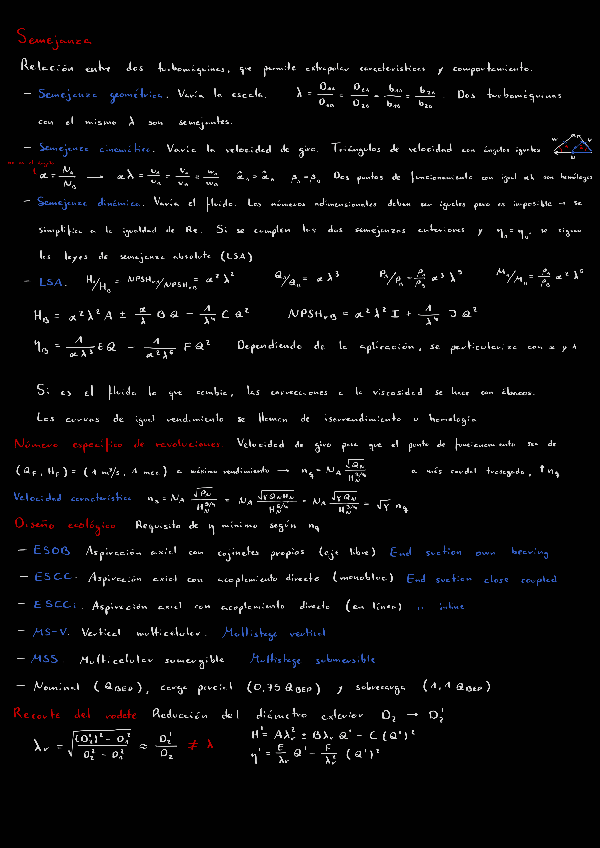 Semejanza
Relación entre dos turbomáquinas, que permite extrapolar características y comportamiento.
- Semejanza geométrica. Varía la escala. λ = D₁ₐ/D₁ᵦ = D₂ₐ/D₂ᵦ = b₁ₐ/b₁ᵦ = b₂ₐ/b₂ᵦ. Dos turbomáquinas
con el mismo λ son semejantes.
- Semejanza cinemática. Varía la velocidad de giro. Triángulos de velocidad con ángulos iguales
α = Nₐ/Nᵦ → αλ = uₐ/uᵦ = vₐ/vᵦ = wₐ/wᵦ Dos puntos de funcionamiento con igual son homólogos
- Semejanza dinámica. Varía el fluido. Los números adimensionales deben ser iguales pero es imposible → se
simplifica a la igualdad de Re. Si se cumplen las dos semejanzas anteriores y ηₐ = ηᵦ, se siguen
las leyes de semejanza absoluta (LSA)
- LSA. Hₐ/Hᵦ = NPSHᵣₐ/NPSHᵣᵦ = α²λ² Qₐ/Qᵦ = αλ³ Pₐ/Pᵦ = ρₐ/ρᵦ α³λ⁵ Mₐ/Mᵦ = ρₐ/ρᵦ α²λ⁵
H_B = α²λ²A ± α/λ BQ - 1/λ⁴ CQ² NPSHᵣB = α²λ² I + 1/λ⁴ JQ²
η_B = 1/αλ³ EQ - 1/α²λ⁶ FQ² Dependiendo de la aplicación, se particulariza con α y λ
Si es el fluido lo que cambia, las correcciones a la viscosidad se hace con ábacos.
Las curvas de igual rendimiento se llaman de isorendimiento u homología
Número específico de revoluciones Velocidad de giro para que el punto de funcionamiento sea de
(Q_F, H_F) = (1 m³/s, 1 mca) a máximo rendimiento → n_q = N_A √Q_N/H_N^3/4 a más caudal trasegado, ↑n_q
Velocidad característica n_s = N_A √P_N/H_N^5/4 = N_A √γQ_N H_N/H_N^5/4 = N_A √γQ_N/H_N^3/4 = √γ n_q
Diseño ecológico Requisito de η mínimo según n_q
- ESOB Aspiración axial con cojinetes propios (eje libre) End suction own bearing
- ESCC. Aspiración axial con acoplamiento directo (monobloc) End suction close coupled
- ESCCi. Aspiración axial con acoplamiento directo (en línea) " inline
- MS-V. Vertical multicelular. Multistage vertical
- MSS Multicelular sumergible Multistage submersible
- Nominal (Q_BEP), carga parcial (0,75 Q_BEP) y sobrecarga (1,1 Q_BEP)
Recorte del rodete Reducción del diámetro exterior D₂ → D₂'
λᵣ = √((D₂')² - D₁²)/(D₂² - D₁²) ≈ D₂'/D₂ ≠ λ
H' = Aλᵣ² ± Bλᵣ Q' - C(Q')²
η' = E/λᵣ Q' - F/λᵣ² (Q')²